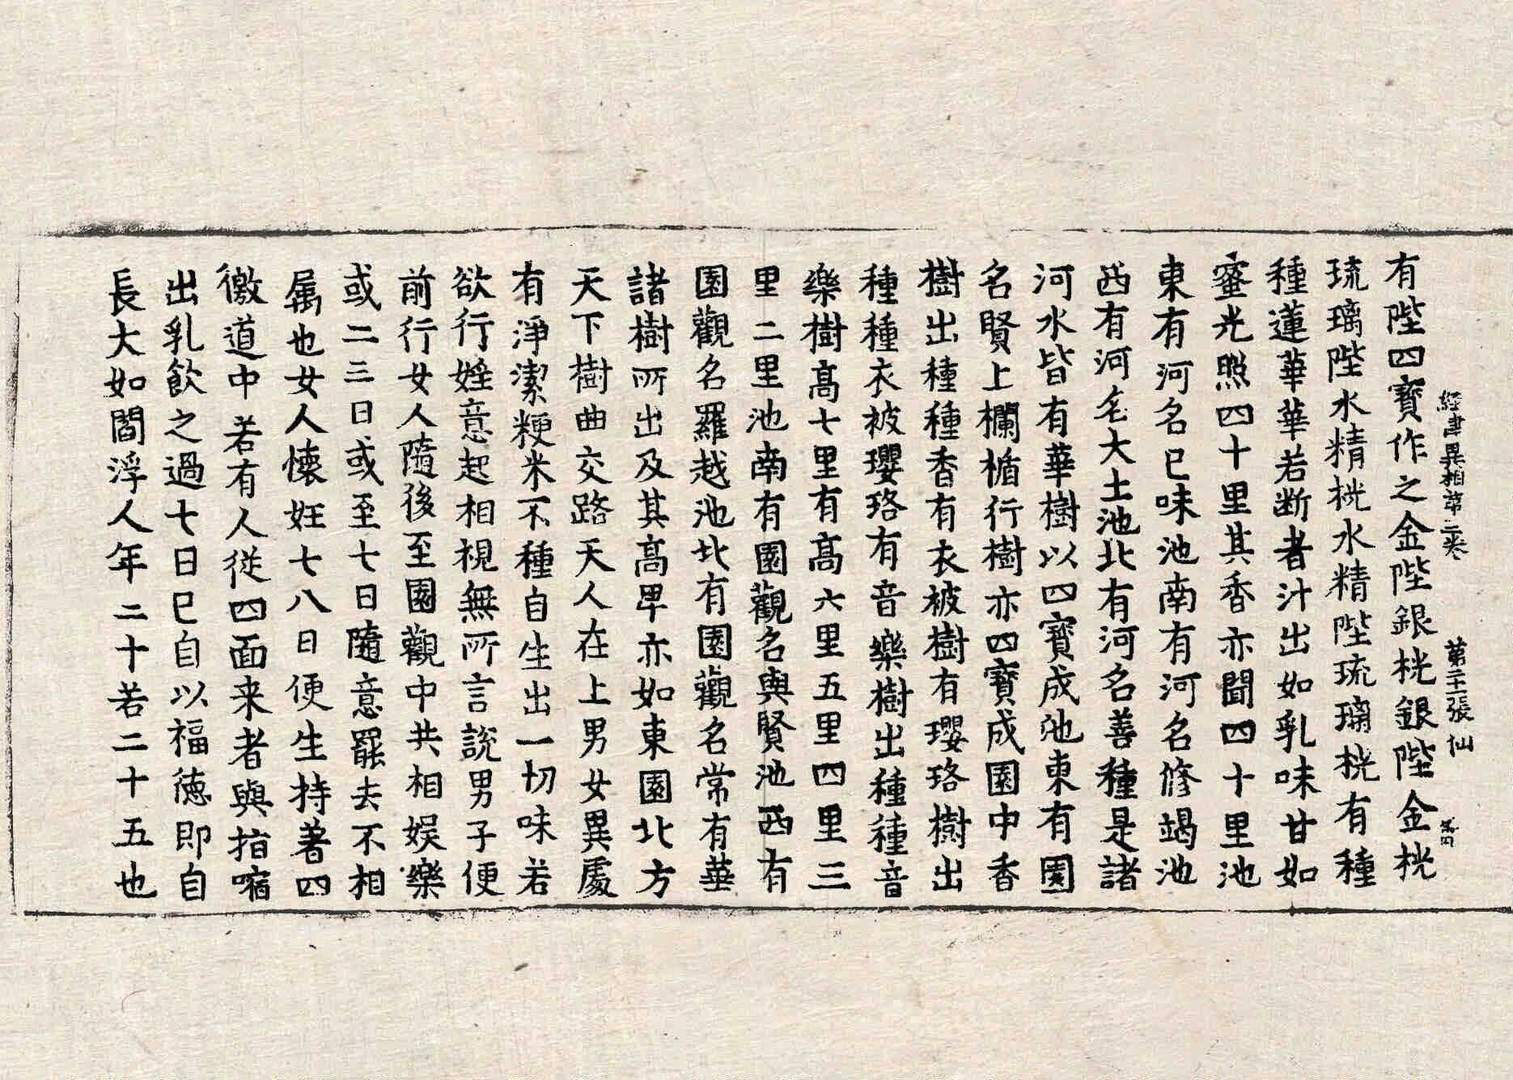 有陛四寶作之金陛銀桄銀陛金桄
經律異相第三卷　第三張　仙
琉璃陛水精桄水精陛琉璃桄有種
種蓮華華若断者汁出如乳味甘如
蜜光照四十里其香亦聞四十里池
東有河名已味池南有河名修竭池
西有河名大土池北有河名善種是諸
河水皆有華樹以四寶成池東有園
名賢上欄楯行樹亦四寶成園中香
樹出種種香有衣被樹有瓔珞樹出
種種衣被瓔珞有音樂樹出種種音
樂樹高七里有高六里五里四里三
里二里池南有園觀名與賢池西有
園觀名羅越池北有園觀名常有華
諸樹所出及其高卑亦如東園北方
天下樹曲交路天人在上男女異處
有淨潔粳米不種自生出一切味若
欲行婬意起相視無所言說男子便
前行女人隨後至園觀中共相娛樂
或二三日或至七日隨意罷去不相
属也女人懷妊七八日便生持著四
徼道中若有人從四面来者與指嗍
出乳飲之過七日已自以福德即自
長大如閻浮人年二十若二十五也